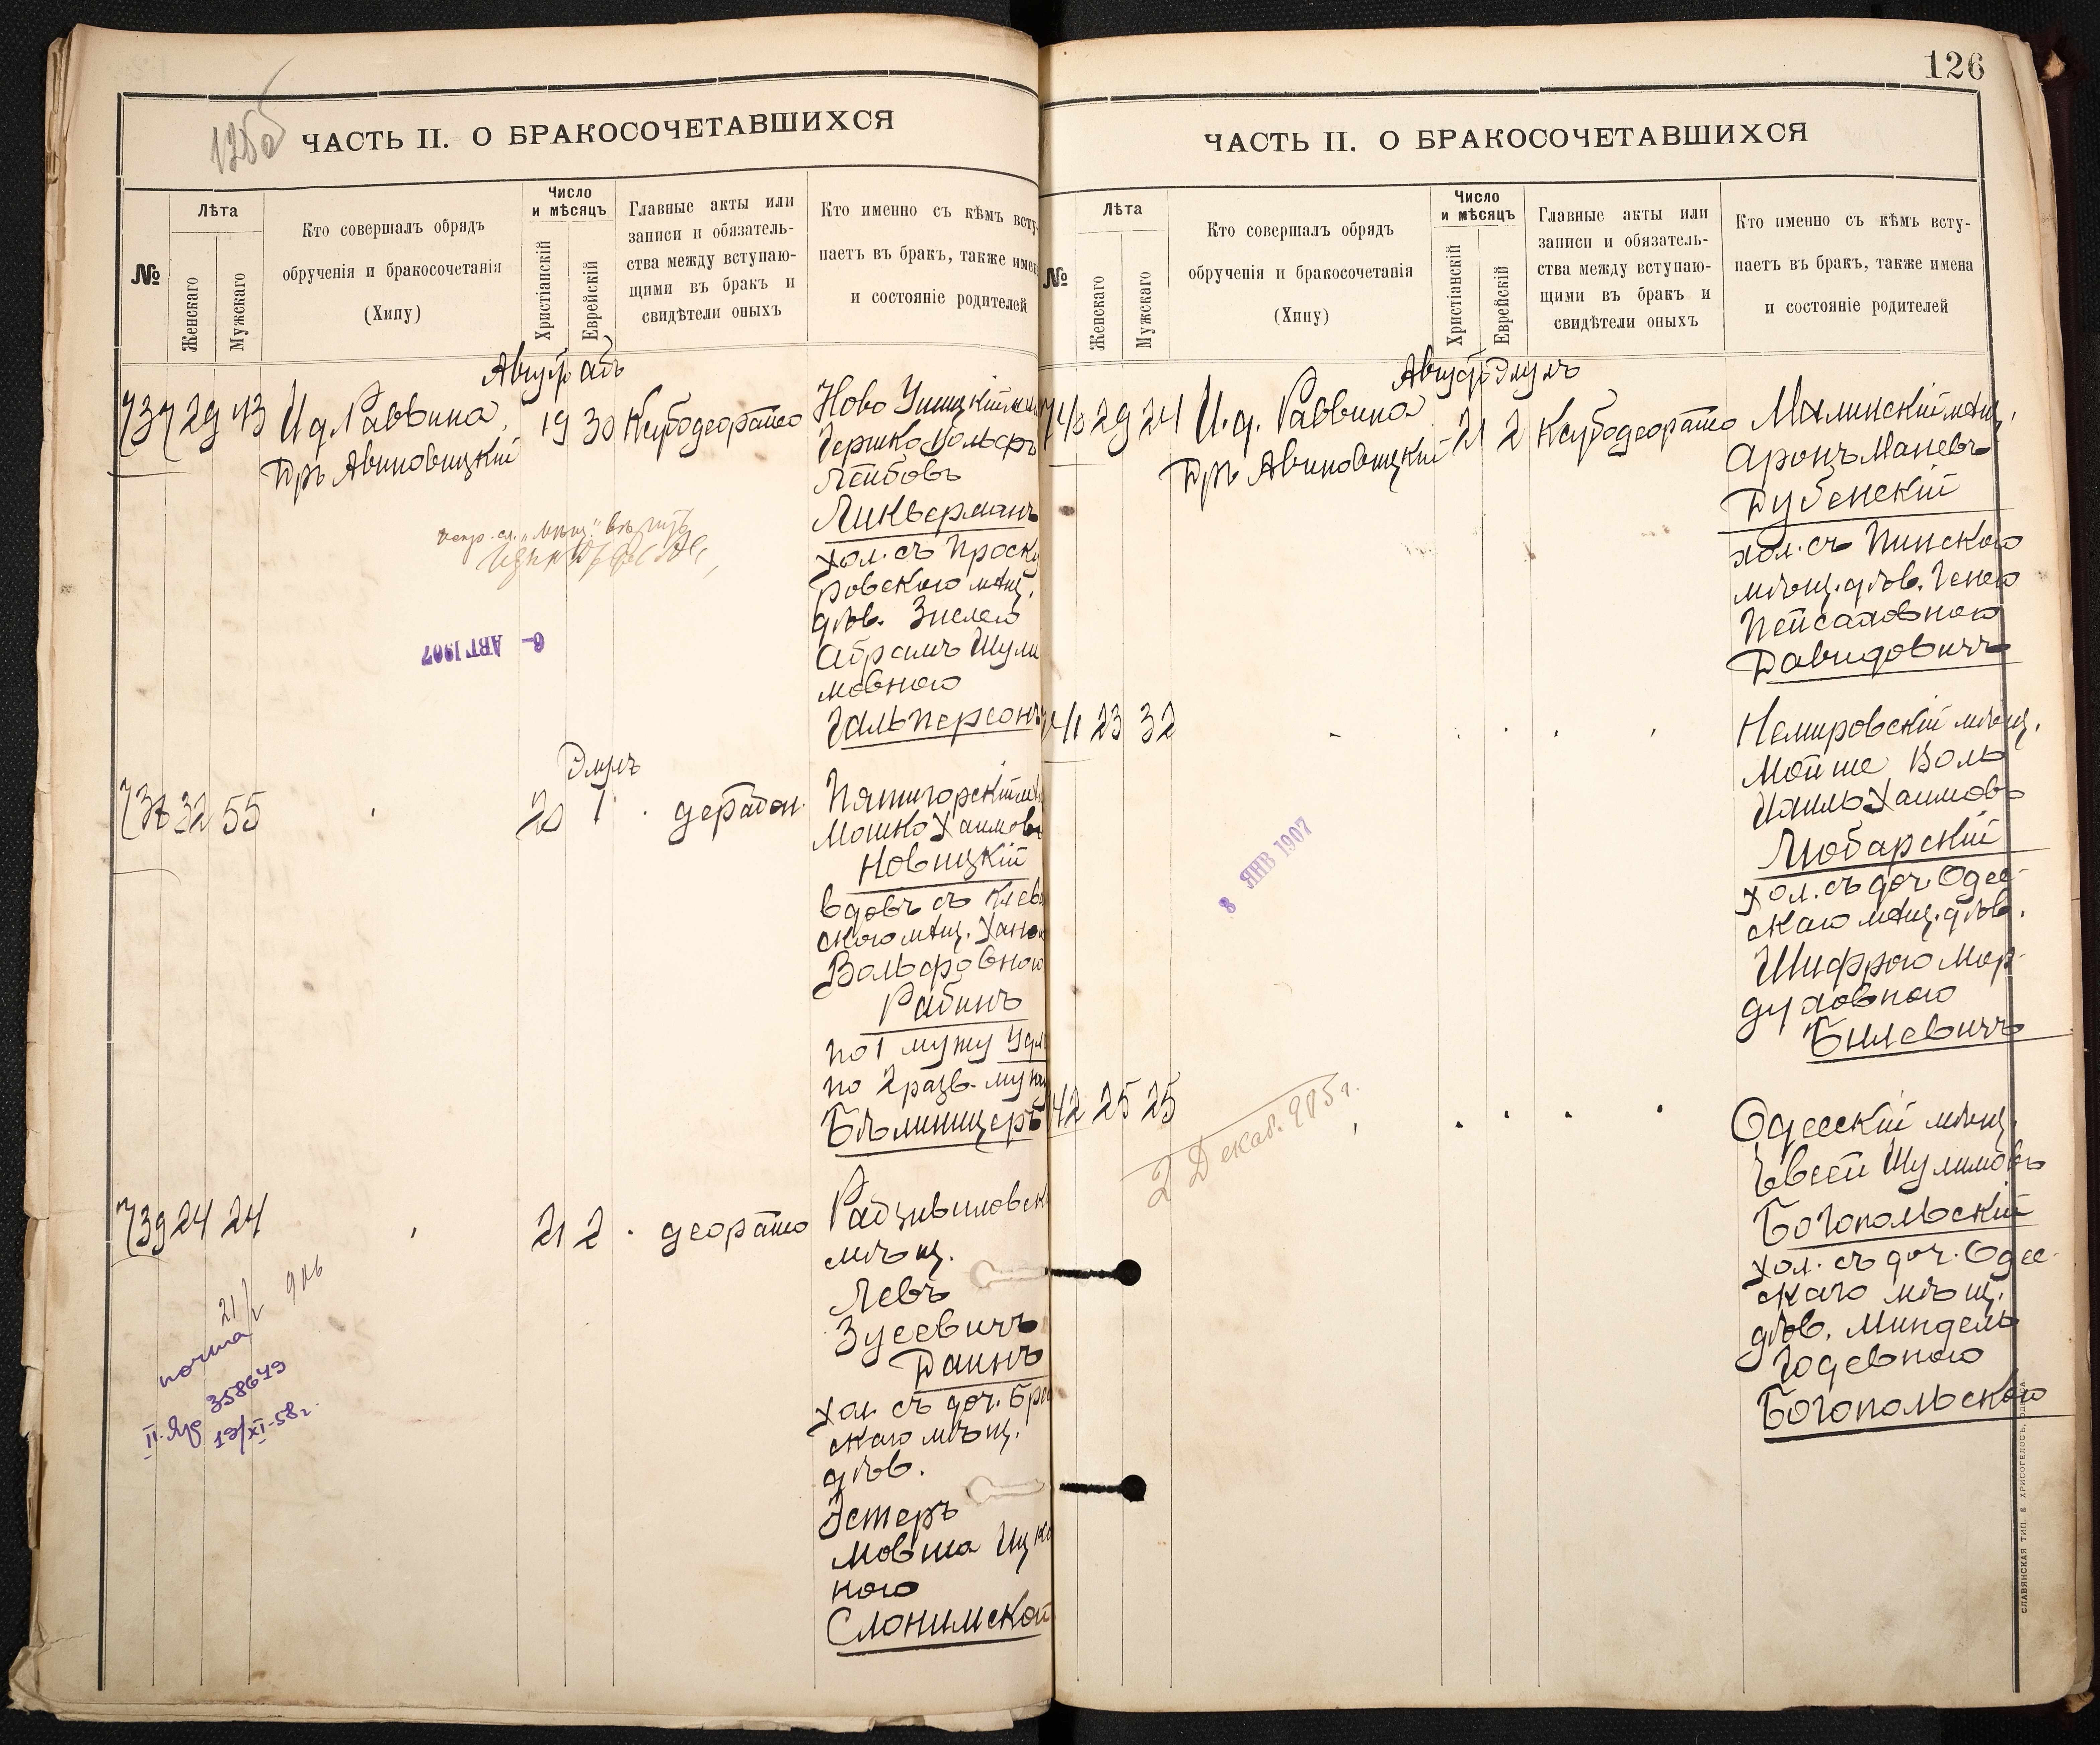 126
125об
ЧАСТЬ II. О БРАКОСОЧЕТАВШИХСЯ
№
Лѣта
Женскаго
Мужскаго
Кто совершалъ обрядъ
обрученія и бракосочетанія
(Хипу)
Число
и мѣсяцъ
Христіанскій
Еврейскій
Главные акты или
записи и обязатель-
ства между вступаю-
щими въ бракъ и
свидѣтели оныхъ
Кто именно съ кѣмъ всту-
паетъ въ бракъ, также имена
и состояніе родителей
Август Абъ
737 29 43 И д Раввина 19 30 Ксубодеорайто
Дръ Авиновицкій
Ново Ушицкій мѣщ
Гершко Вольфъ
Лейбовъ
Ликверманъ
хол. съ Проску
ровскою мѣщ.
дѣв. Зислею
Абрамъ Шули
мовною
Гальперсонъ
6- АВГ 1907
Элулъ
738 32 55 20 1 дерабон.
Пятигорскій мѣ
Мошко Хаимовъ
Новицкій
вдовъ съ Клев
скою мѣщ. Ханою
Вольфовною
Рабинъ
по 1 мужу
по 2 разв. мужу
Бѣлиницеръ
739 24 24 21 2 деорайто
Радзивиловскій
мѣщ.
Левъ
Зусевичъ
Даинъ
хол. съ доч. Бра
скаго мѣщ.
дѣв.
Эстеръ
Мовша Ицко
ною
Слонимской
почта
II-
358679
19/XI-58г.
ЧАСТЬ II. О БРАКОСОЧЕТАВШИХСЯ
№
Лѣта
Женскаго
Мужскаго
Кто совершалъ обрядъ
обрученія и бракосочетанія
(Хипу)
Число
и мѣсяцъ
Христіанскій
Еврейскій
Главные акты или
записи и обязатель-
ства между вступаю-
щими въ бракъ и
свидѣтели оныхъ
Кто именно съ кѣмъ всту-
паетъ въ бракъ, также имена
и состояніе родителей
Август Элулъ
740 29 24 И. д. Раввина 21 2 Ксубодеорайто
Дръ Авиновицкій
Малинскій мѣщ.
Аронъ Маневъ
Дубенскій
хол. съ Пинскою
мѣщ. дѣв. Генею
Пейсаховною
Давидовичъ
741 23 32
Немировскій мѣщ.
МойшеВоль
Иоиль Хаимовъ
Любарскій
хол. съ доч. Одес-
скаго мѣщ. дѣв.
Шифрою Мор-
духовною
Билевичъ
8 ЯНВ 1907
742 25 25
2 Декаб. 915 г.
Одесскій мѣщ.
Евсей Шулимовъ
Богопольскій
хол. съ доч. Одес-
скаго мѣщ.
дѣв. Миндель
Годевною
Богопольскою
СЛАВЯНСКАЯ ТИП. Е ХРИСОГЕЛОСЪ, ОДЕССА.